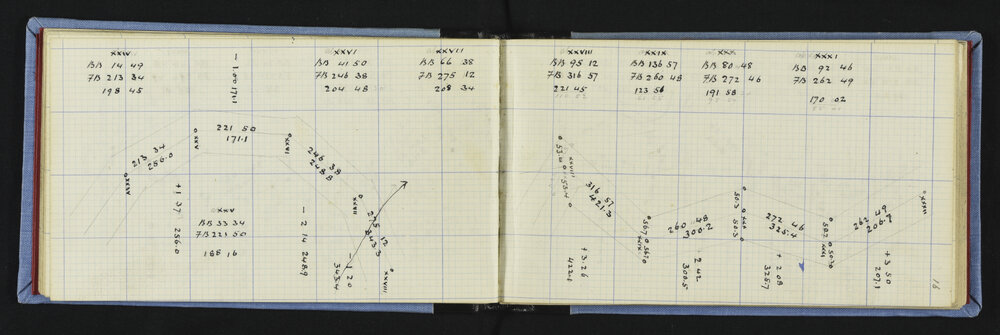 XXIV
BB 14 49
FB 213 34
198 45
XXVI
BB 41 50
FB 246 38
204 48
XXVII
BB 66 38
FB 275 12
208 34
221 50
171.1
XXV
XXVI
213 34
256.0
XXIV
246 38
248.8
XXVII
275 12
343.3
XXVIII
+1 37 256.0
XXV
BB 33 34
FB 221 50
188 16
- 2 14 248.9
- 1 20
343.4
XXVIII
BB 95 12
FB 316 57
221 45
XXIX
BB 136 57
FB 260 48
123 56
XXX
BB 80 48
FB 272 46
191 58
XXXI
BB 92 46
FB 262 49
170 02
XXVIII
53.4
316 57
421.3
XXIX
260 48
300.2
50.3
XXX
50.3
272 46
325.4
50.2
XXXI
262 49
XXXII
+ 3.26
422.1
2 42
300.5
+ 2 08
325.7
+ 3 50
207.1
16